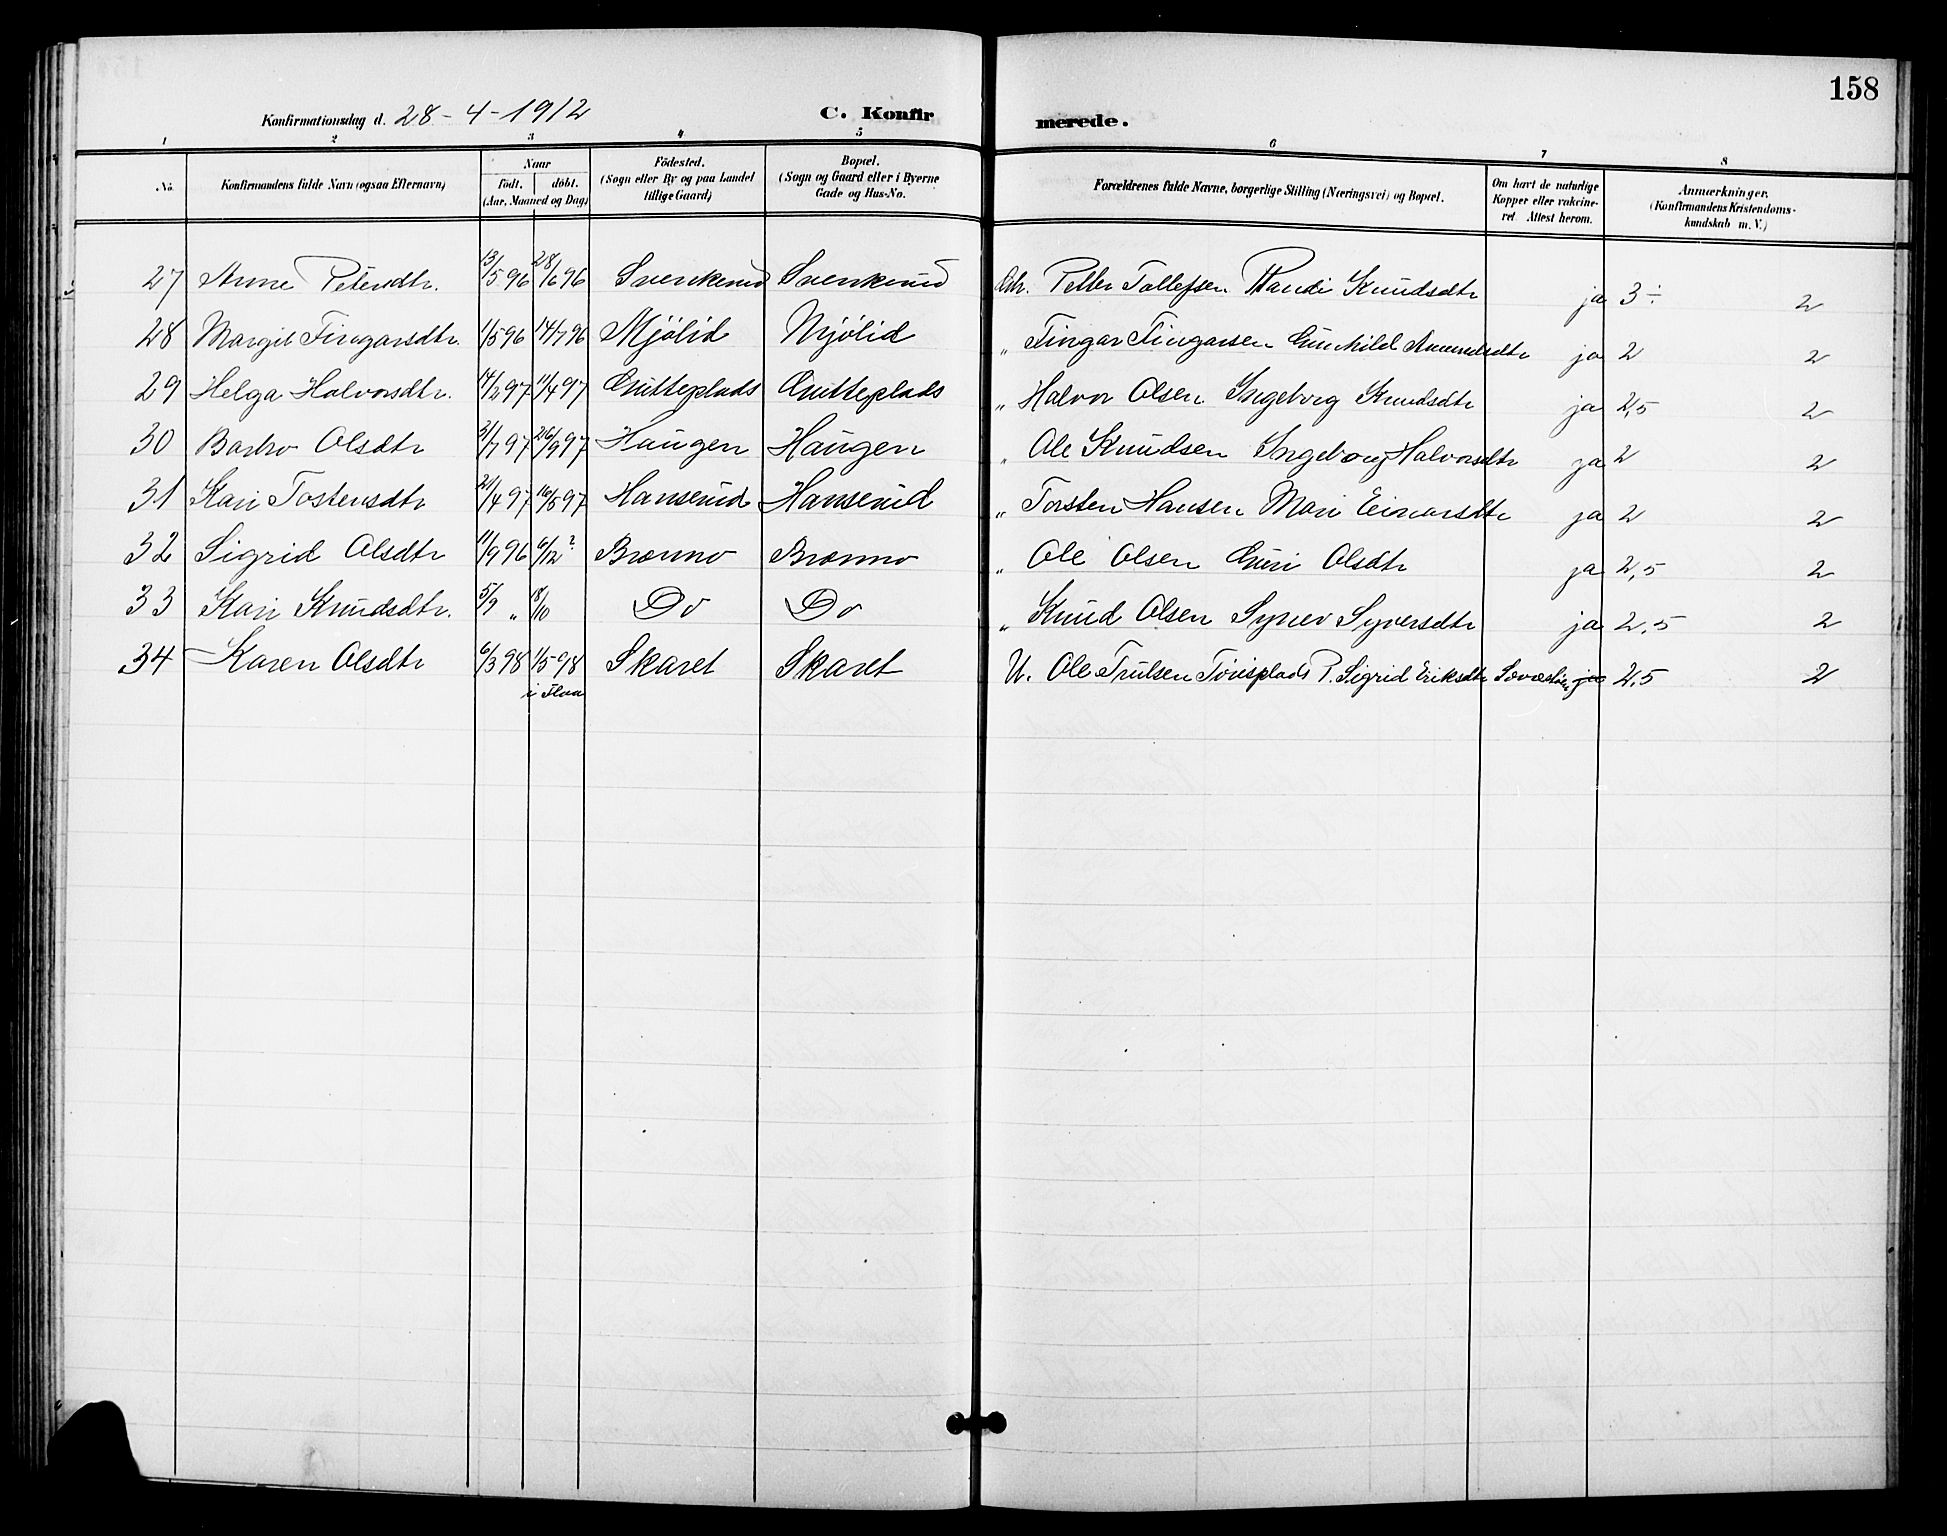 158
Konfirmationsdag d. 28-4-1912 C. Konfirmerede.
1 2 3 4 5 6 7 8
No. Konfirmandens fulde Navn (ogsaa Efternavn) Naar født. døbt. (Aar, Maaned og Dag) Fødested. (Sogn eller By og paa Landet tillige Gaard) Bopæl. (Sogn og Gaard eller i Byerne Gade og Hus-No. Forældrenes fulde Navne, borgerlige Stilling (Næringsvei) og Bopæl. Om havt de naturlige Kopper eller vakcineret Attest herom. Anmærkninger. (Konfirmandens Kristendomskundskab m. V.)
27 Anne Petersdtr. 13/5 96 28/6 96 Svenkerud Svenkerud Petter Tollefsen Randi Knudsdtr ja 3÷ 2
28 Margit Fingarsdtr. 1/5 96 14/7 96 Mjölid Mjölid " Fingar Fingarsen Gunhild Amundsdtr ja 2 2
29 Helga Halvorsdtr. 14/2 97 11/4 97 Gutteplads Gutteplads " Halvor Olsen Ingeborg Knudsdtr ja 2,5 2
30 Barbro Olsdtr 31/7 97 26/9 97 Haugen Haugen " Ole Knudsen Ingeborg Halvorsdtr ja 2 2
31 Kari Tostensdtr 21/4 97 16/5 97 Hanserud Hanserud " Torsten Hansen Mari Einarsdtr ja 2 2
32 Sigrid Olsdtr 11/9 96 6/12 ? Bromno Bromno " Ole Olsen Guri Olsdtr ja 2,5 2
33 Kari Knudsdtr. 5/9 " 18/10 Do Do " Knud Olsen Synev Syversdtr ja 2,5 2
34 Karen Olsdtr 6/3 98 1/5 98 Skaret Skaret U. Ole Trulsen Törisplads P. Sigrid Eriksdtr ja 2,5 2
i Flaa